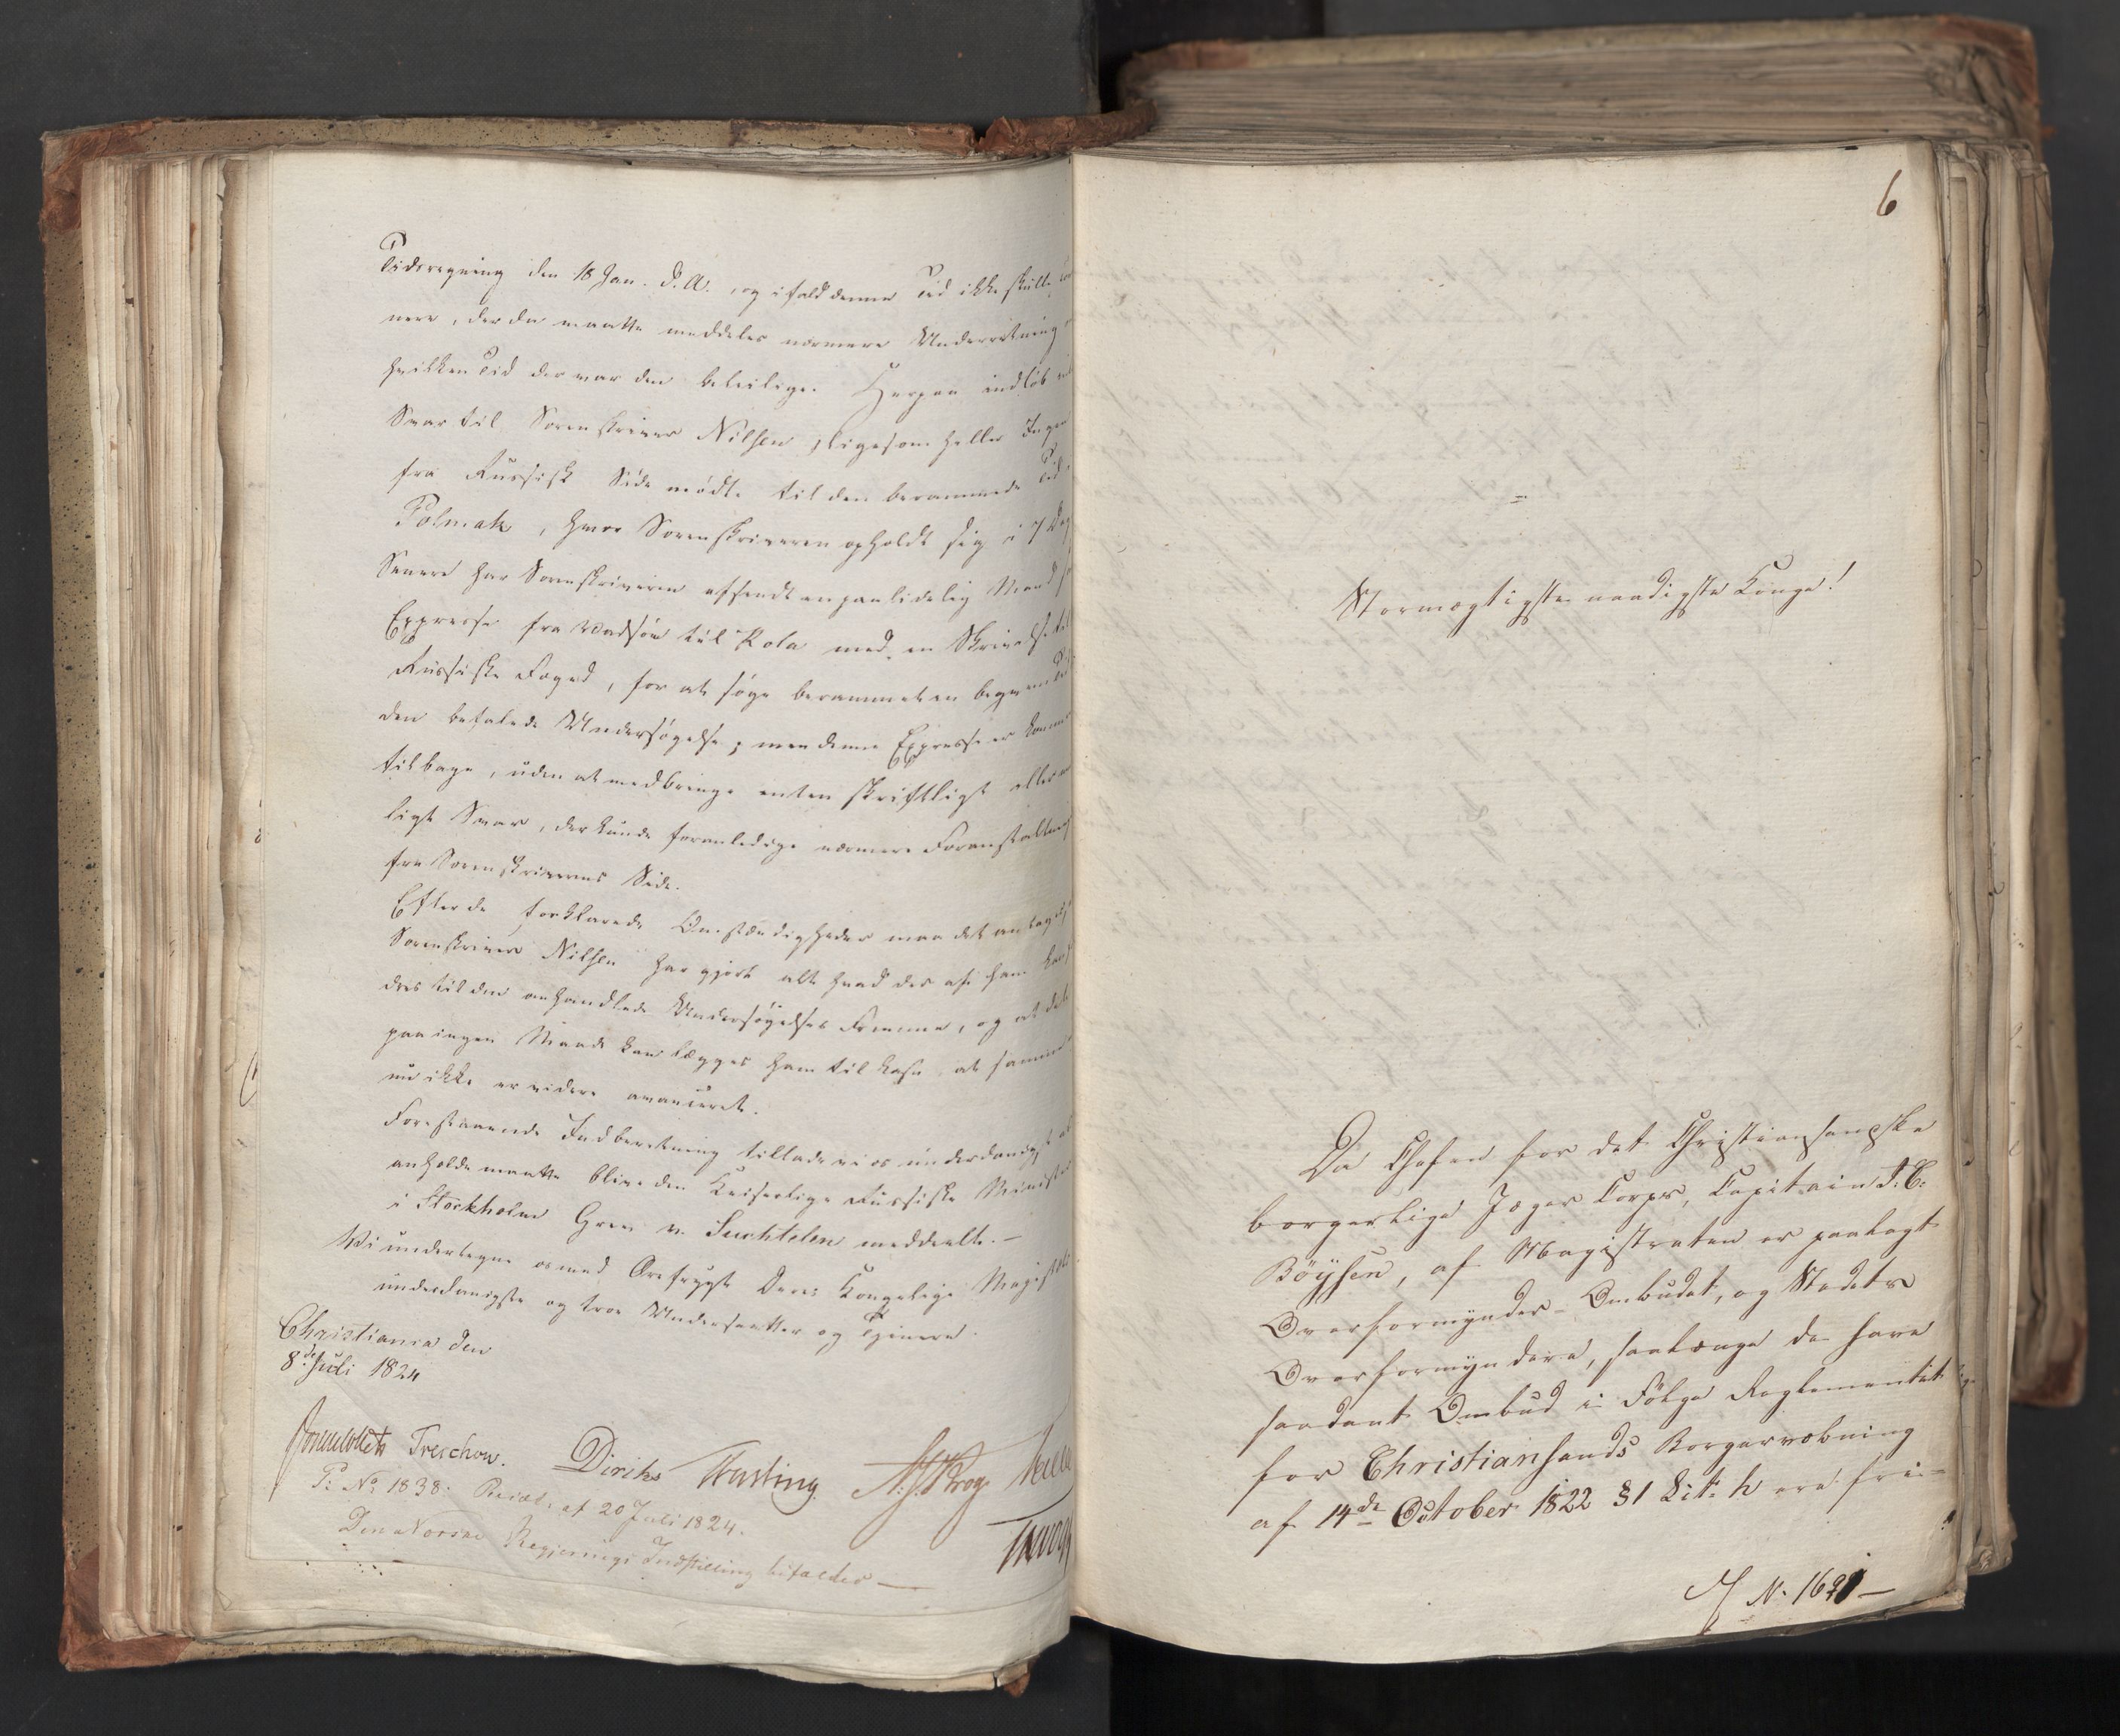 Tidsregning den 18 Jan. d. A., og ifald denne Tid ikke skulle
nere, der da maatte meddeles nærmere Underretning
hvilken Tid der var den beleilige. Herpaa indløb
Svar til Sorenskriver Nilsen, ligesom heller Ingen
fra Russisk Side mødte til den berammede Tid
Polmak, hvor Sorenskriveren opholdt sig i 7 Dag
Senere har Sorenskriveren afsendt en paalidelig Mand
Expresse fra Vadsøe til Kola med en Skrivelse til
Russiske Foged, for at søge berammet en beqvem Tid
den befalede Undersøgelse; men denne Expresse er kommen
tilbage, uden at medbringe enten skriftligt eller
ligt Svar, der kunde foranledige nærmere Foranstaltning
fra Sorenskriverens Side.
Efter de forklarede Omstændigheder maa det antages,
Sorenskriver Nilsen har gjort alt hvad der af ham
dres til den omhandlede Undersøgelses Fremme, og at det
paa ingen Maade kan lægges ham til Last, at samme
nu ikke er videre avanceret.
Forestaaende Indberetning tillade vi os underdanigst at
anholde maatte blive den Keiserlige Russiske Minister
i Stockholm Grev v. Suchtelen meddeelt. –
Vi undertegne os med Ærefrygt Deres Kongelige Majestæts
underdanigste og troe Undersaatter og Tjenere.
Christiania den
8de Juli 1824
Sommerhielm Treschow. Diriks Fasting. Krog
P: No 1838. Resol. af 20 Juli 1824.
Den Norske Regjerings Indstilling bifaldes —
6
Stormægtigste naadigste Konge!
Da Chefen for det Christiansandske
borgerlige Jæger Corps, Capitain J. C.
Böysen, af Magistraten er paalagt
Overformynder-Ombudet, og Stadets
Overformyndere, saalænge de have
saadant Ombud i Følge Reglementet
for Christiansands Borgervæbning
af 14de October 1822 §1 Lit: h ere fri-
N. 1691 —